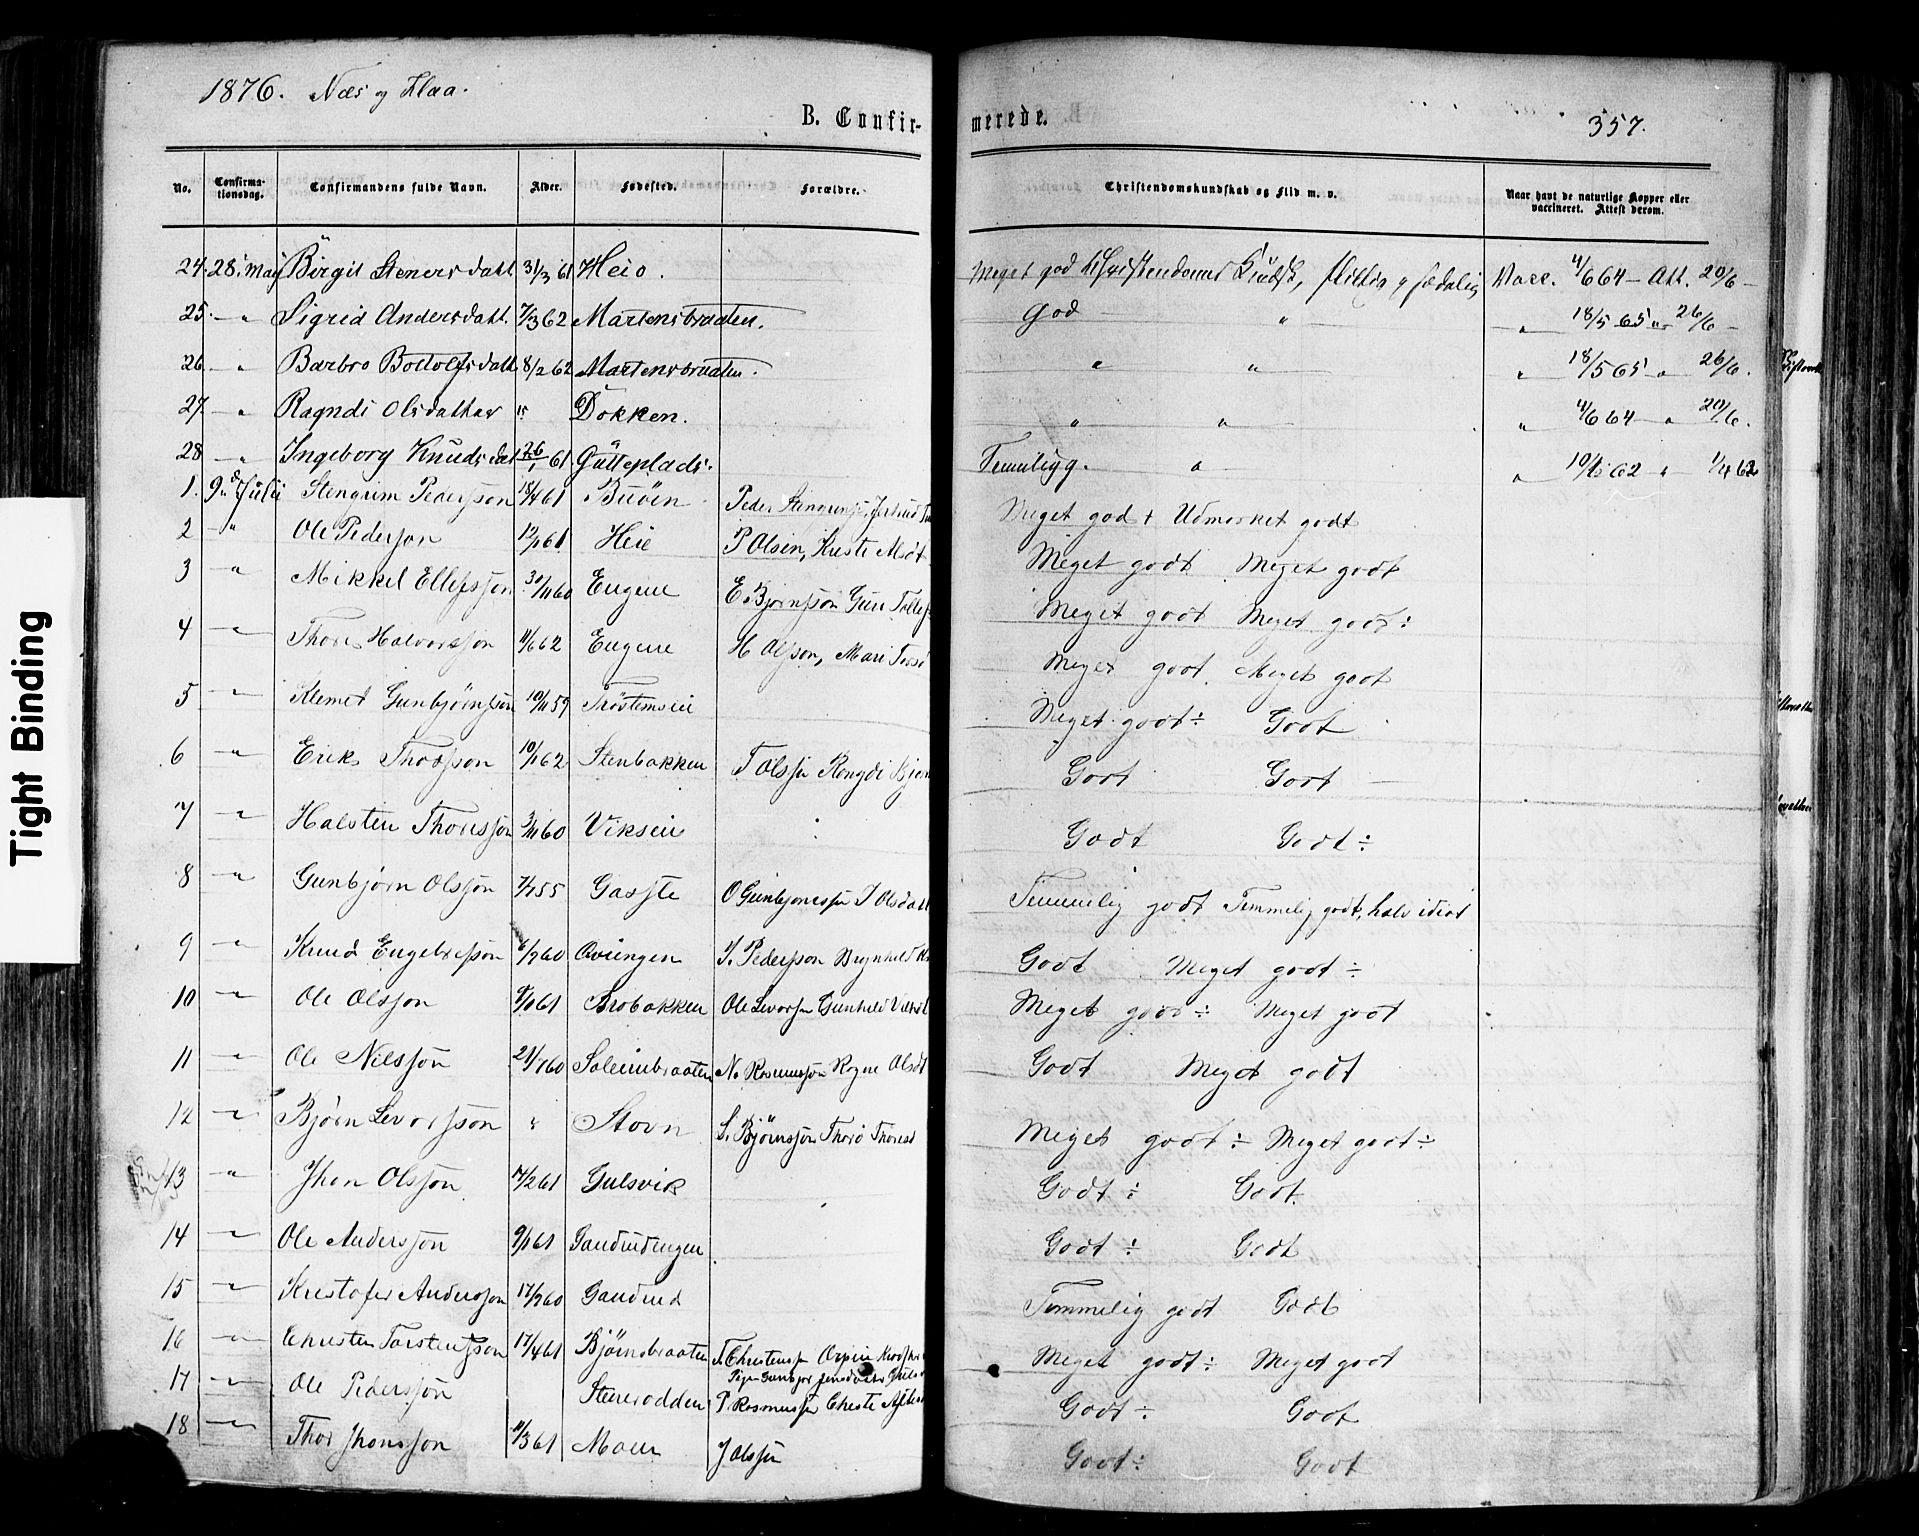 1876. Næs og Flaa.
B. Confir-
merede.
357.
No. Confirma-tionsdag. Confirmandens fulde Navn. Alder. Fødested. Forældre. Christendomskundskab og Flid m. v. Naar havt de naturlige Kopper eller vaccineret. Attest derom.
24. 28. Mai Birgit Stenersdatt. 31/3 61 Heie. Meget god Christendoms Kundsk, flittig og sædelig Vacc. 4/6 64 – Att. 20/6 –
25. – " Sigrid Andersdatt. 7/3 62 Martensbraaten. God " " 18/5 65 " 26/6 –
26. – " Barbro Bottolfsdatt 8/2 62 Martensbraaten. " " " 18/5 65 " 26/6.
27. " Ragndi Olsdatter " Dokken. " " " 4/6 64 – " 20/6.
28 – " Ingeborg Knudsdat 26/1 61 Gutteplads. Temmelig g. " " 10/6 62 " 1/4 62
1. 9de Julii Stengrim Pedersson 18/4 61 Buøen Peder Stengrims, Jertrud Meget godt Udmerket godt
2 – " Ole Pedersson 12/1 61 Heie P Olsen, Kirsti Meget godt Meget godt
3 " Mikkel Ellefsson 30/11 60 Eugene E. Bjørnsson Guri Tollefs Meget godt Meget godt ÷
4 " Thore Halvorsson 11/6 62 Eugene H Olsson, Mari Meget godt. Meget godt
5 " Klemet Gunbjørnsson 10/11 59 Trøstemseie Meget godt ÷ Godt
6 " Erik Thorsson 10/1 62 Stenbakken T Olssn Rengdi Bjørn Godt Godt –
7 " Halsten Thoresson 3/11 60 Vikseie " Godt Godt ÷
8 " Gunbjørn Olsson 7/7 55 Gasste O Gunbjørnssn I Olsdatt Temmelig godt Temmelig godt, halv idiot
9 " Knud Engebretsson 6/9 60 Øvingen Pedersson Brynhild Godt Meget godt ÷
10 " Ole Olsson 8/1 61 Brobakken Ole Levorsn Gunhild Meget godt ÷ Meget godt
11 " Ole Nilsson 21/7 60 Soleimbraaten N. Rasmusson Rogne Olsdt Godt Meget godt
12 " Bjørn Levorsson " Stovn L. Bjørnsson Thorø Thoresd Meget godt ÷ Meget godt ÷
13 " Jhon Olsson 14/2 61 Gulsvik Godt ÷ Godt.
14 " Ole Andersson 9/1 61 Gandrudengen Godt ÷ Godt
15 " Kristofer Andersson 17/9 60 Gandrud Temmelig godt Godt
16 " Christen Torstensson 17/4 61 Bjørnsbraaten T. Christenssn Meget godt ÷ Meget godt
17 " Ole Pedersson Stenerodden P Rasmussn Cherste Godt ÷ Godt
18 " Thor Jhonsson 11/3 61 Moen J Olssen Godt ÷ Godt
Tight Binding